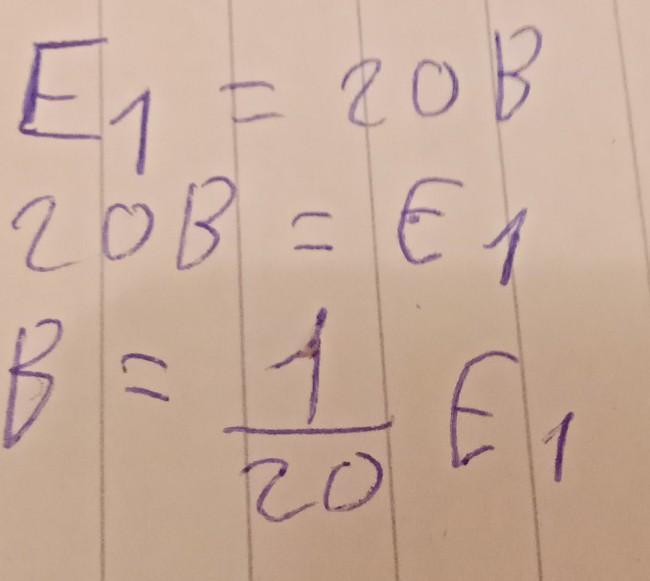 E₁ = 20B
20B = E₁
B = \frac{1}{20} E₁